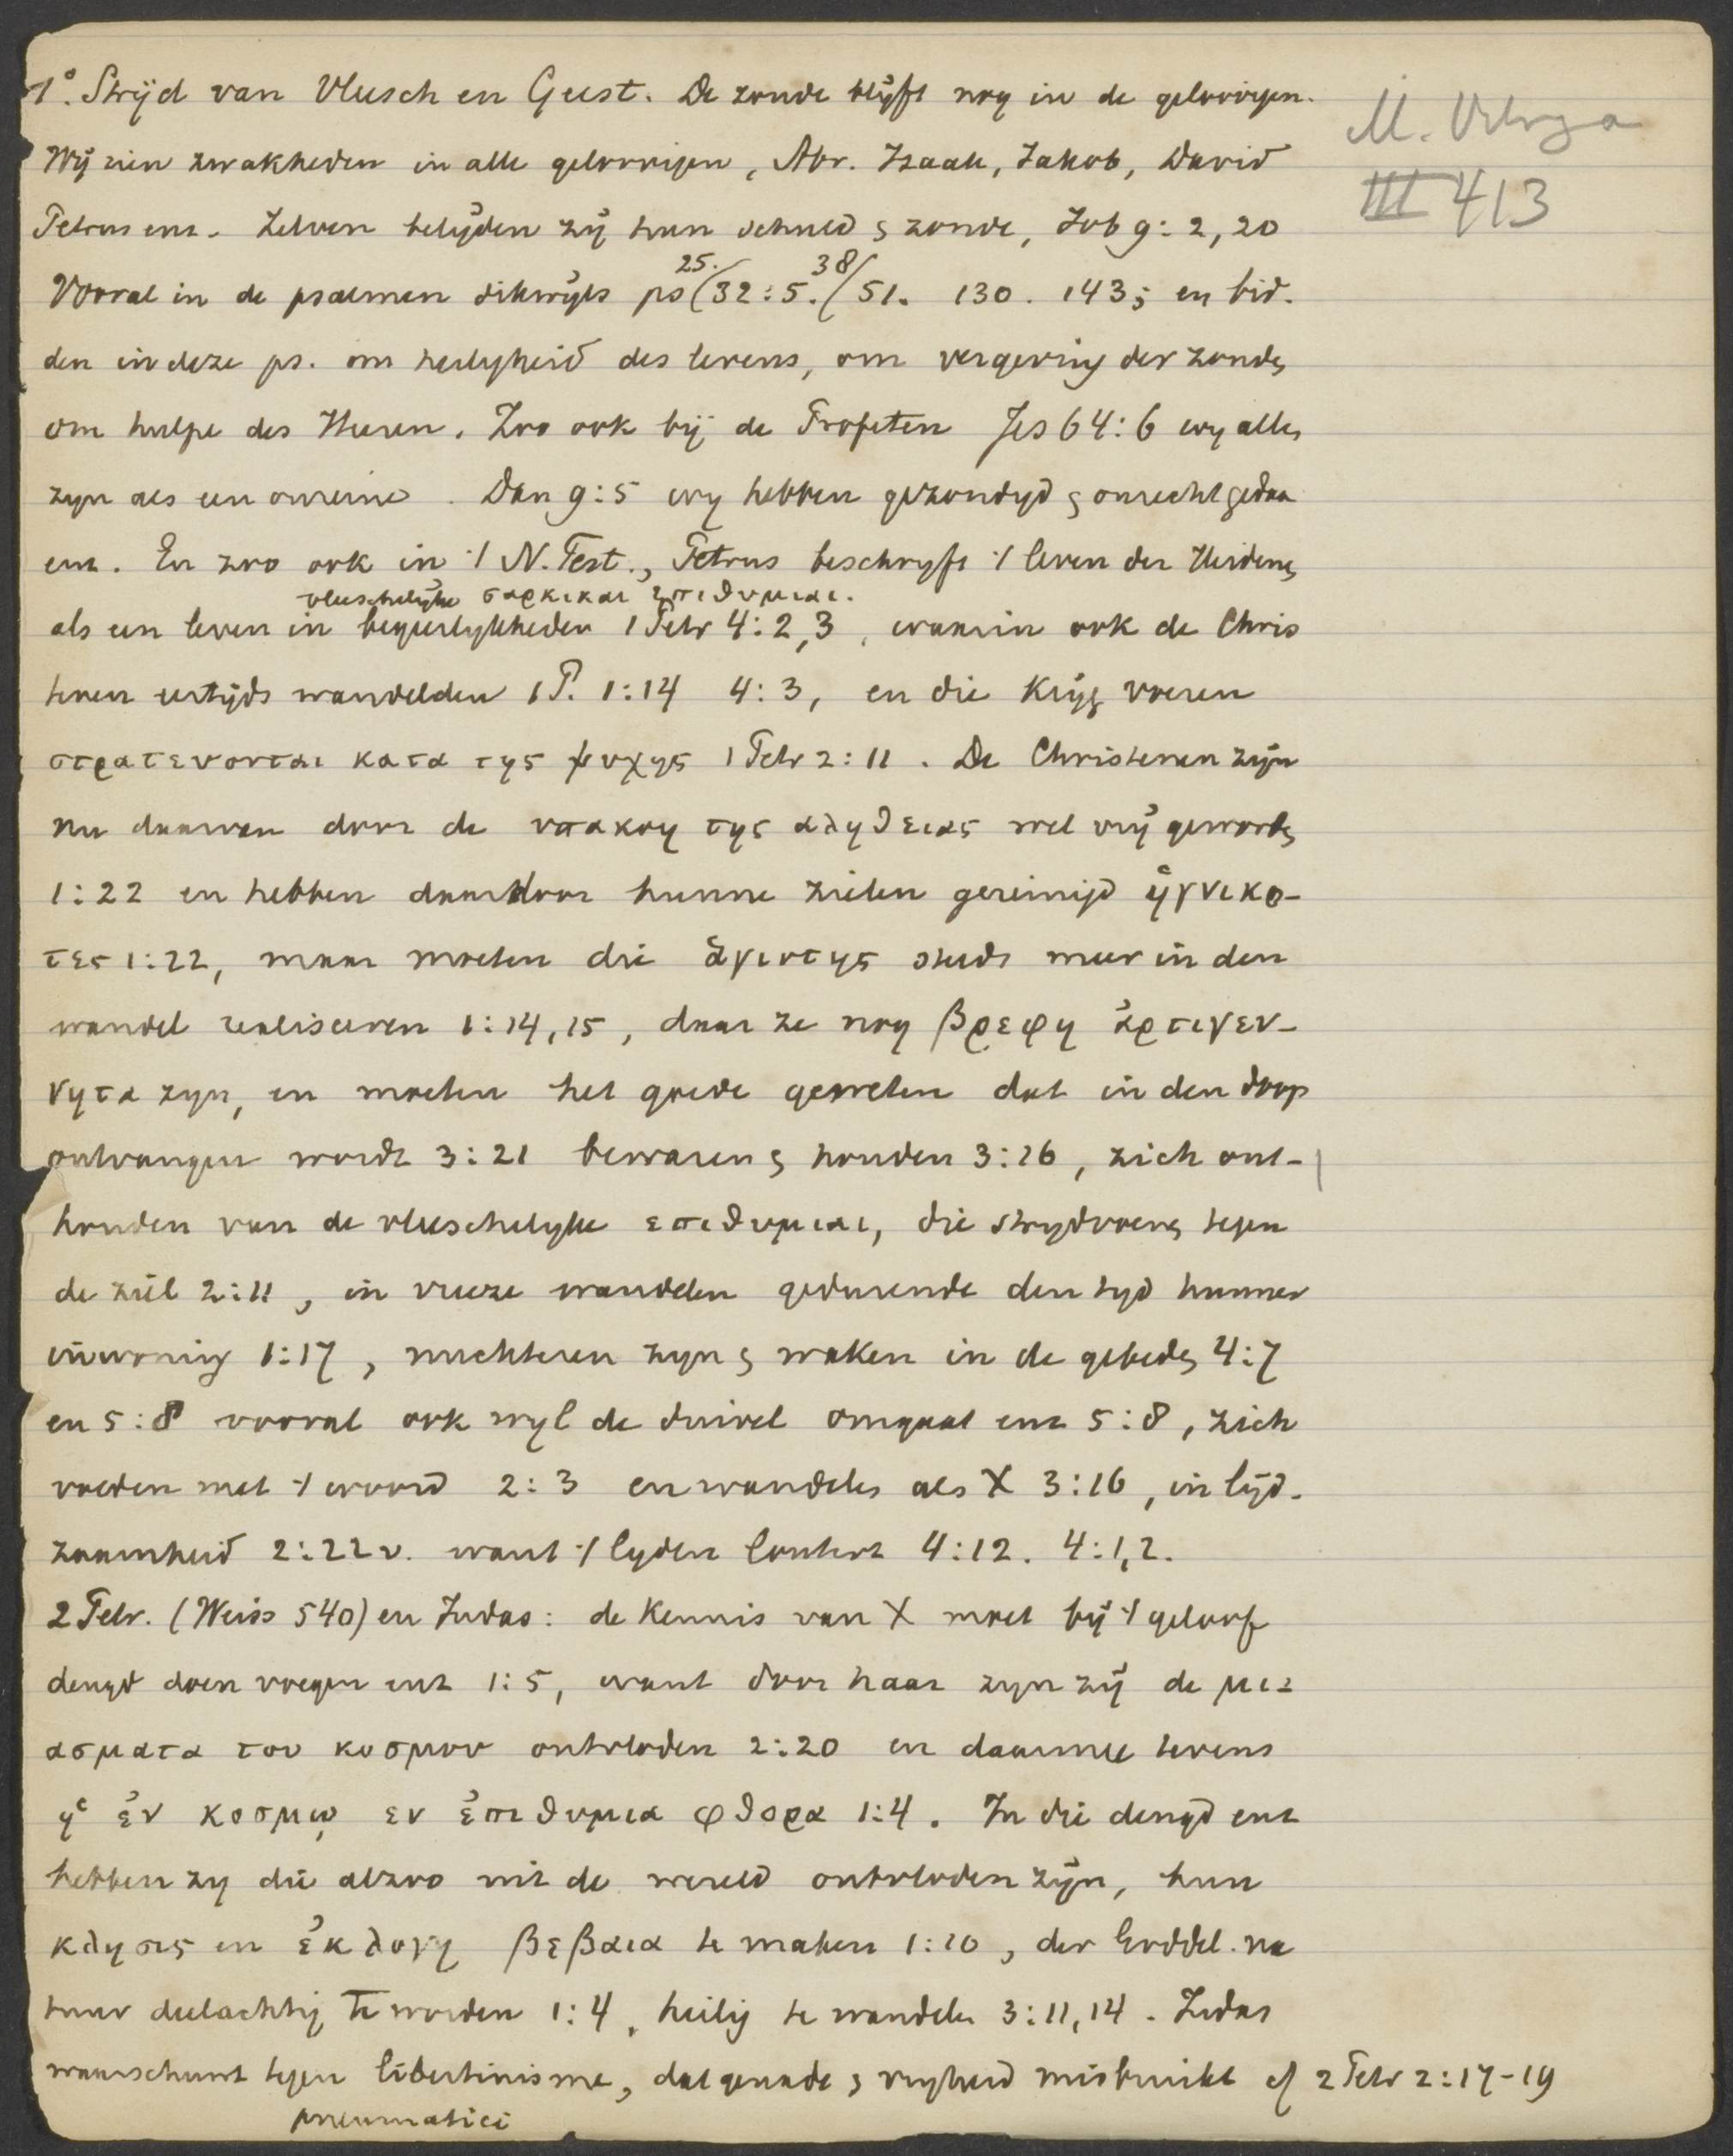 1°. Strijd van Vleesch en Geest. De zonde blijft nog in de geloovigen.
M. Vitringa
III 413
Wij zien zwakheden in alle geloovigen, Abr. Izaak, Jakob, David
Petrus enz. Zelven belijden zij hun schuld & zonde, Job 9: 2, 20
25. 38/
Vooral in de psalmen dikwijls ps (32:5. / 51. 130. 143; en bid-
den in deze ps. om heiligheid des levens, om vergeving der zonde,
om hulpe des Heeren. Zoo ook bij de Profeten Jes 64:6 wy allen
zyn als een onreine. Dan 9:5 wy hebben gezondigd & onrecht gedaa
enz. En zoo ook in 't N. Test., Petrus beschryft 't leven der Heidenen
vleeschelijke σαρκικαι ἐπιθυμιαι.
als een leven in begeerlykheden 1 Petr 4:2,3, waarin ook de Chris
tenen eertijds wandelden 1 P. 1:14 4:3, en die Krijg voeren
στρατευονται κατα της ψυχης 1 Petr 2:11. De Christenen zijn
nu daarvan door de υπακοη της αληθειας wel vrij geworden
1:22 en hebben daardoor hunne zielen gereinigd ἡγνικο-
τες 1:22, maar moeten die ἁγιοτης steeds meer in den
wandel realiseeren 1:14,15, daar ze nog βρεφη ἀρτιγεν-
νητα zyn, en moeten het goede geweten dat in den doop
ontvangen wordt 3:21 bewaren & houden 3:16, zich ont-
houden van de vleeschelyke επιθυμιαι, die strydvoeren tegen
de ziel 2:11, in vreeze wandelen gedurende den tyd hunner
inwoning 1:17, nuchteren zyn & waken in de gebeden 4:7
en 5:8 vooral ook wyl de duivel omgaat enz 5:8, zich
voeden met 't woord 2:3 en wandelen als X 3:16, in lijd-
zaamheid 2:22v. want 't lyden loutert 4:12. 4:1,2.
2 Petr. (Weiss 540) en Judas: de Kennis van X moet bij 't geloof
deugd doen voegen enz 1:5, want door haar zyn zij de μι-
ασματα του κοσμου ontvloden 2:20 en daarmee tevens
ἡ ἐν κοσμῳ εν ἐπιθυμια φθορα 1:4. In die deugd enz
hebben zy die alzoo uit de wereld ontvloden zijn, hun
κλησις en ἐκλογη βεβαια te maken 1:10, der Goddel. na
tuur deelachtig te worden 1:4, heilig te wandelen 3:11,14. Judas
waarschuwt tegen libertinisme, dat genade & vryheid misbruikt cf 2 Petr 2:17-19
pneumatici